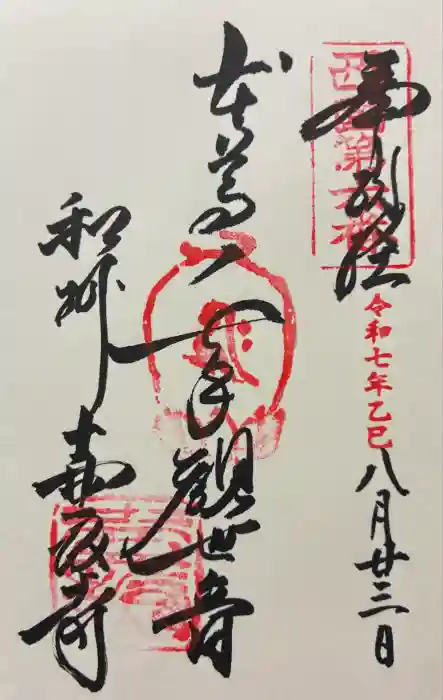 西國第六番
奉納経
令和七年乙巳八月廿三日
本尊千手観世音
和州 壷阪寺